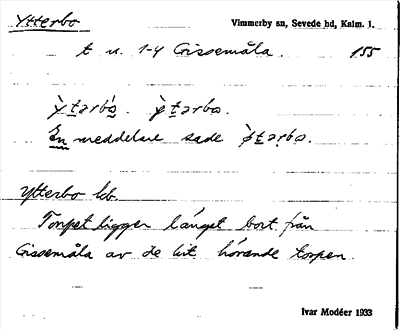 Ytterbo
Vimmerby sn, Sevede hd, Kalm. l.
t u. 1-4 Gissemåla. 155
En meddelare sade
Ytterbo kb.
Torpet ligger längst bort från
Gissemåla av de hit hörande torpen.
Ivar Modéer 1933